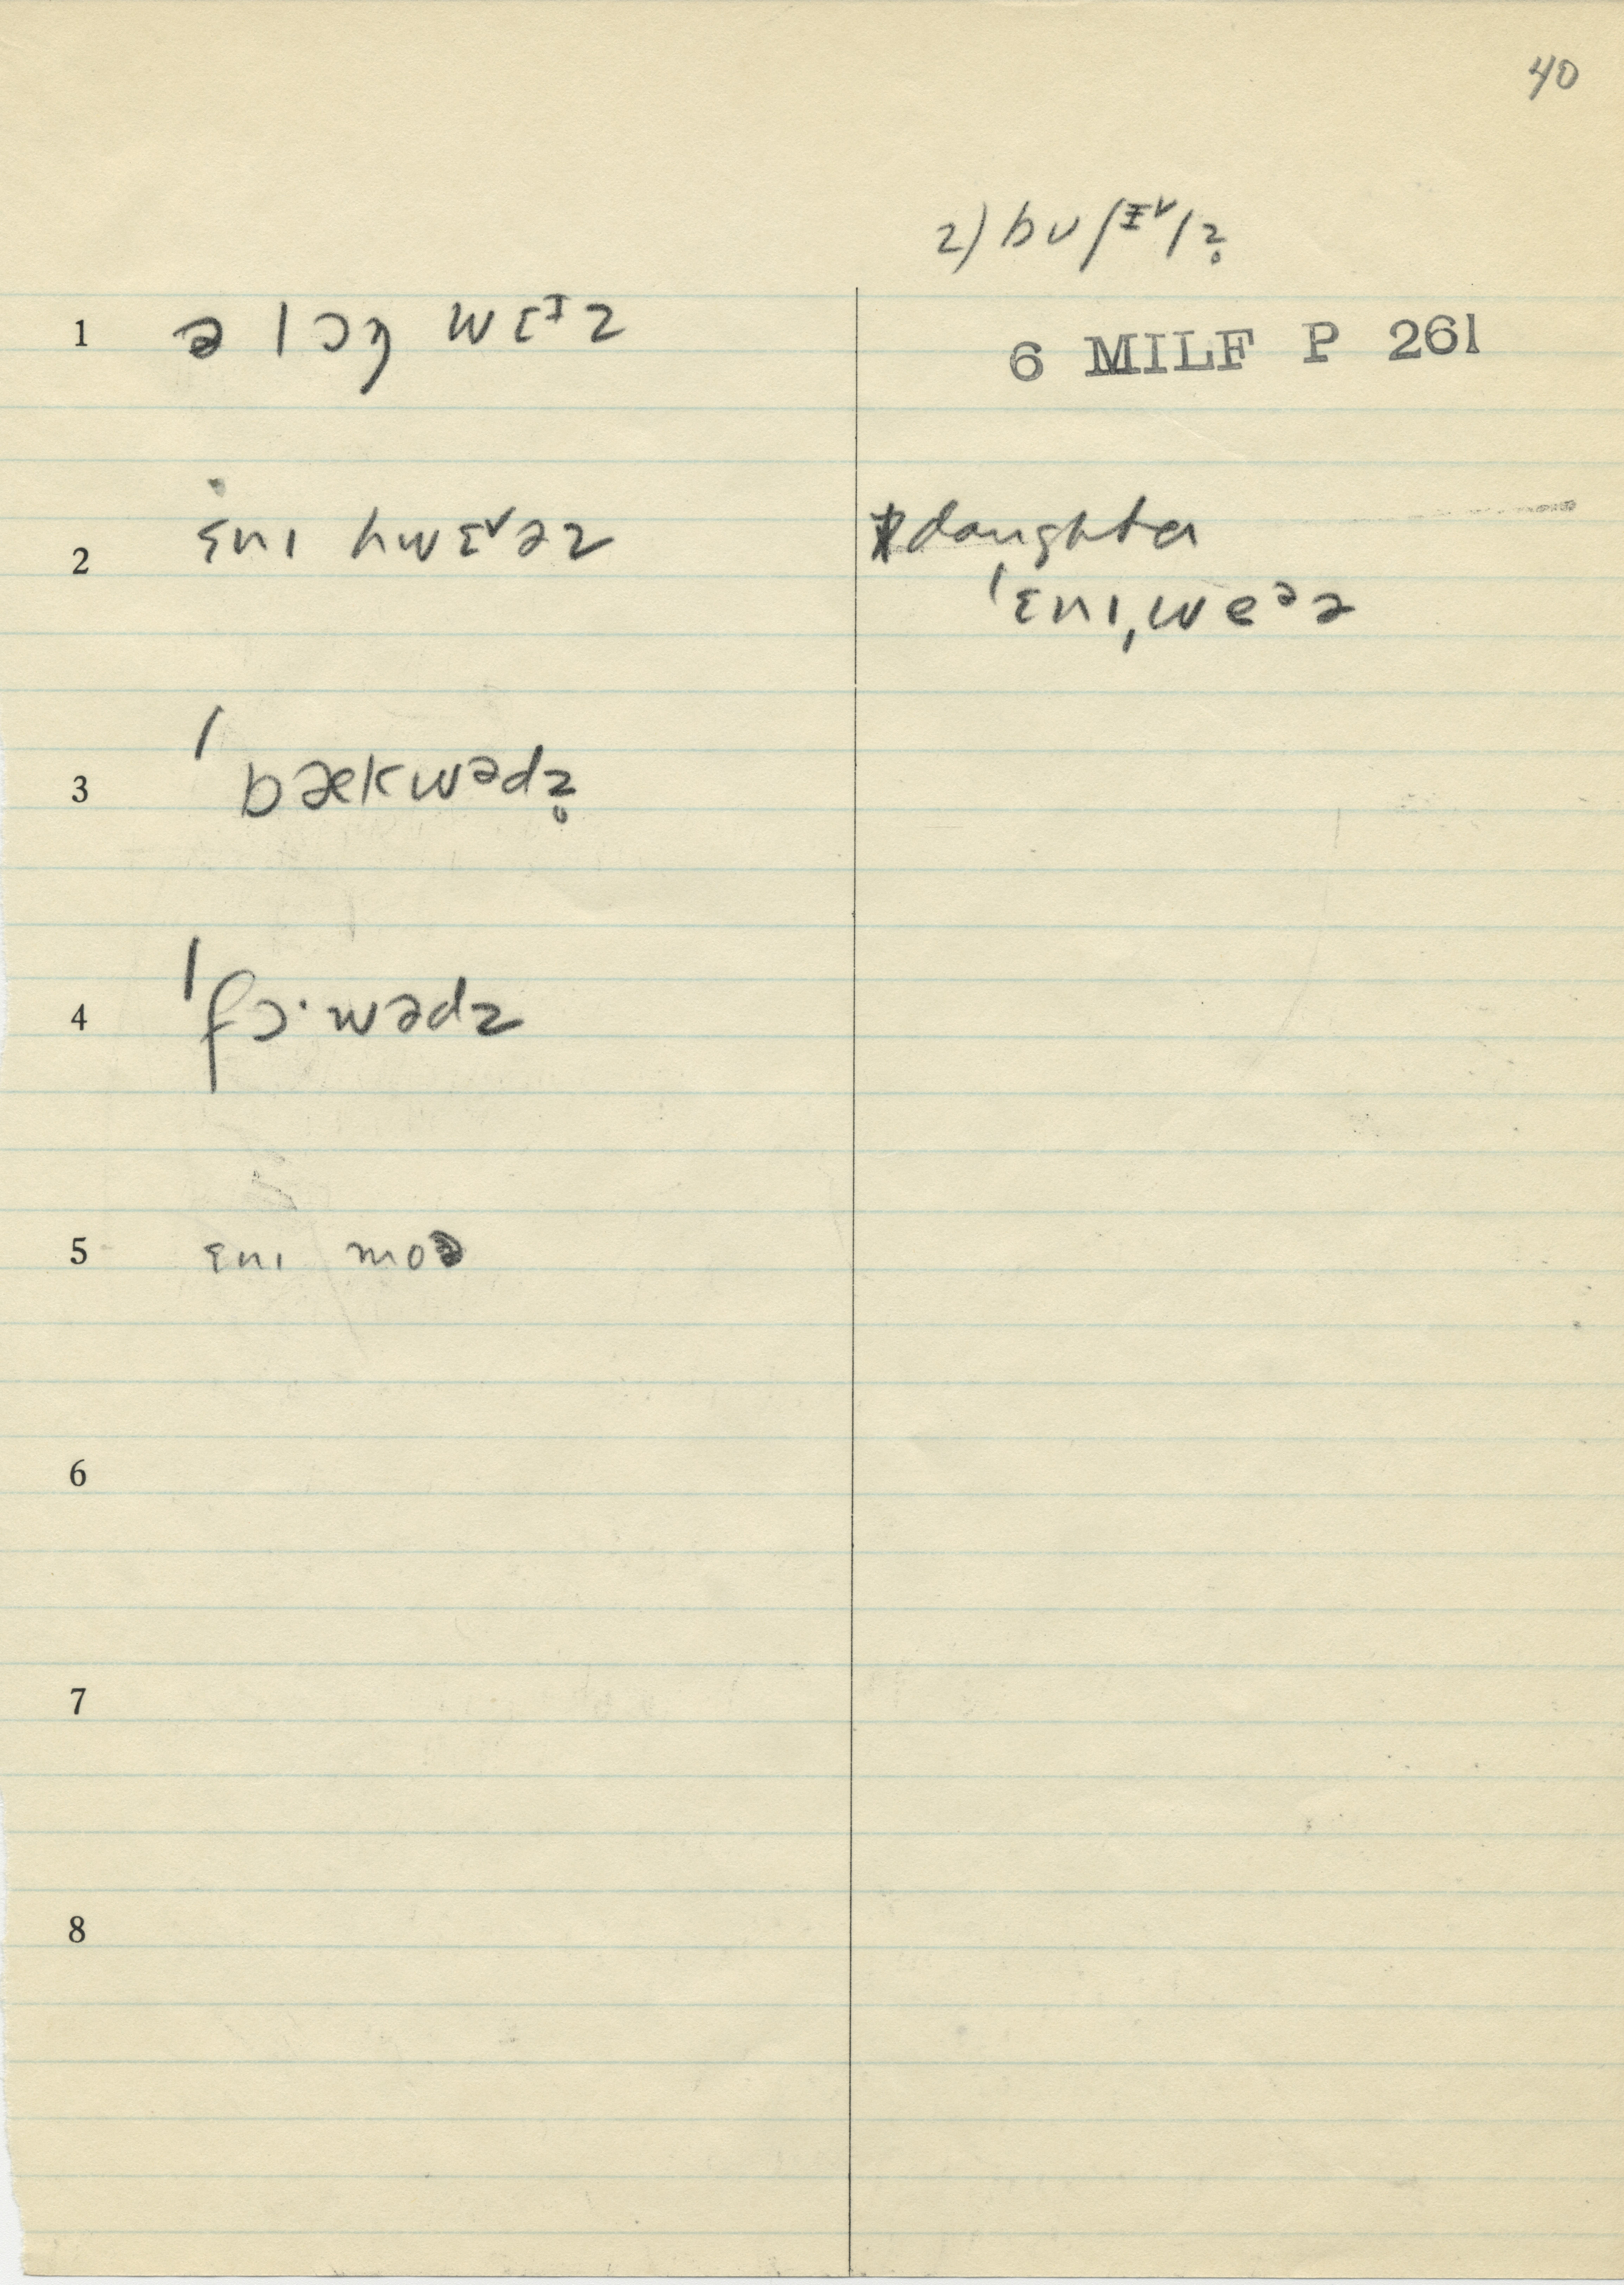 40
2) bʊʃɪ˅lz̥
1 ə lɔŋ wɛᶦz
6 MILF P 261
2 ɛnɪ hwɛ˅əz
daughter
ˈɛnɪˌweᵊə
3 ˈbækwədz̥
4 ˈfɔ·wədz
5 ɛnɪ moə
6
7
8